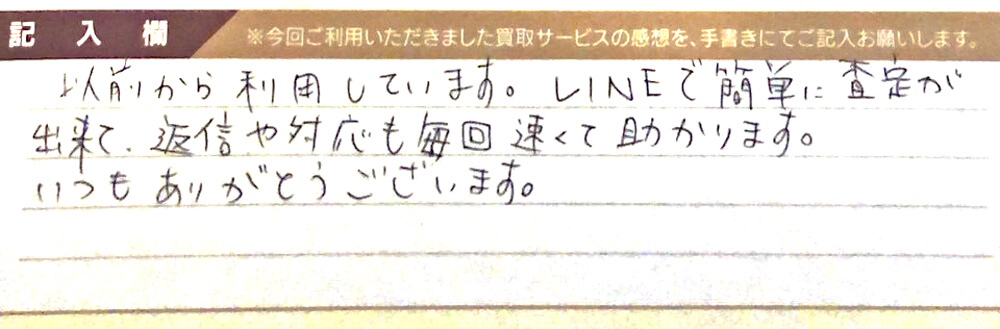 記入欄
※今回ご利用いただきました買取サービスの感想を、手書きにてご記入お願いします。
以前から利用しています。LINEで簡単に査定が
出来て、返信や対応も毎回速くて助かります。
いつもありがとうございます。